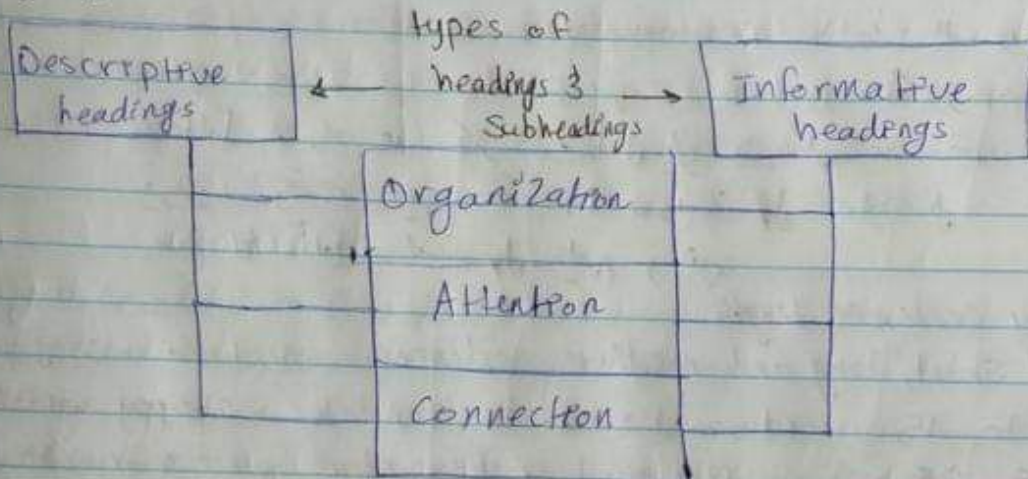 types of
Descriptive
headings
headings &
Subheadings
Informative
headings
Organization
Attention
Connection